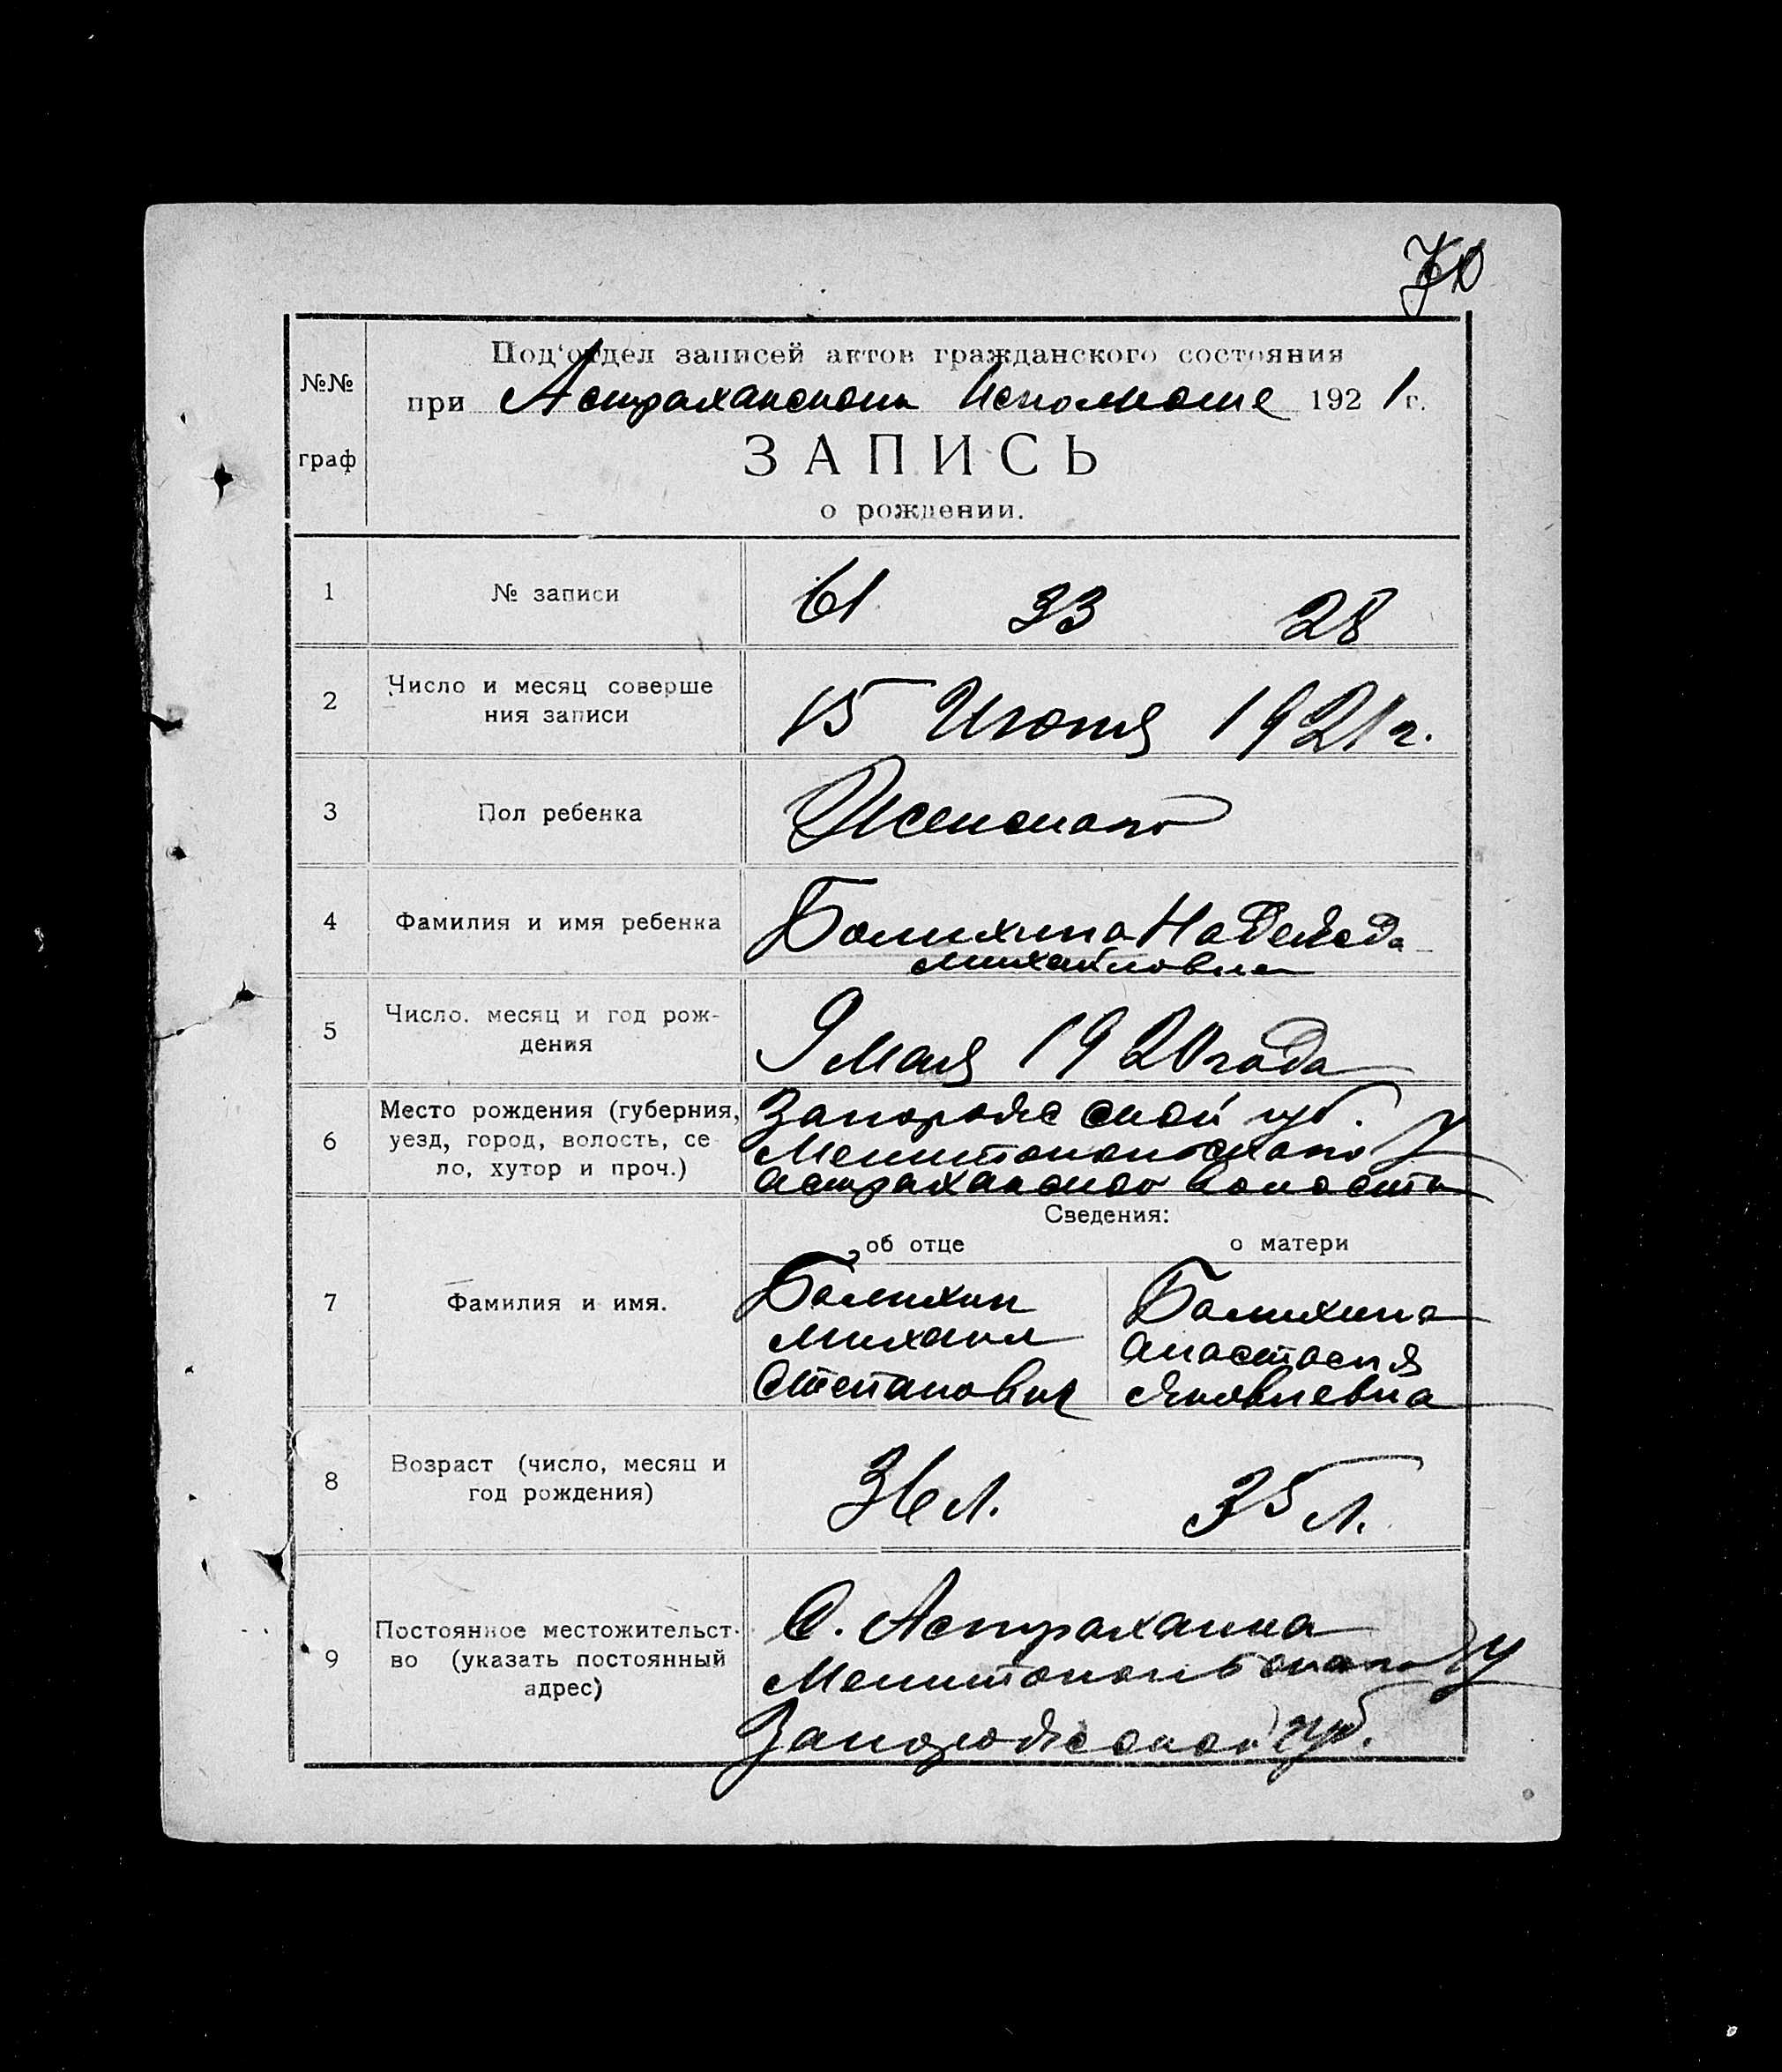 70
№№
граф
Под‘отдел записей актов гражданского состояния
при Астраханском Исполкоме 1921 г.
ЗАПИСЬ
о рождении.
1 № записи 61 33 28
2 Число и месяц соверше
ния записи 15 Июня 1921 г.
3 Пол ребенка Женскаго
4 Фамилия и имя ребенка Болихина Надежда
Михайловна
5 Число. месяц и год рож-
дения 9 Мая 1920 года
6 Место рождения (губерния,
уезд, город, волость, се
ло, хутор и проч.)
Запорожской губ.
Мелитопольскаго у
Астраханской волости
Сведения:
об отце о матери
7 Фамилия и имя.
Болихин
Михаил
Степанович
Болихина
Анастасия
Яковлевна
8 Возраст (число, месяц и
год рождения) 36 л. 35 л.
9 Постоянное местожительст-
во (указать постоянный
адрес)
С. Астраханка
Мелитопольскаго у
Запорожской губ.